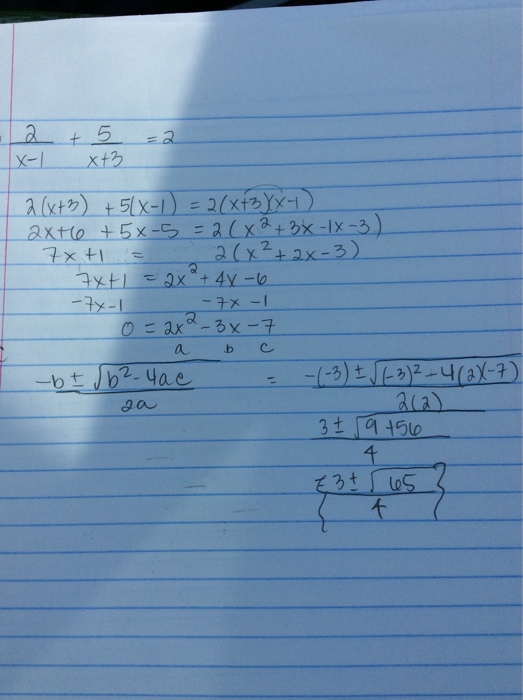 2/(x-1) + 5/(x+3) = 2
2(x+3) + 5(x-1) = 2(x+3)(x-1)
2x+6 + 5x-5 = 2(x²+3x-1x-3)
7x+1 = 2(x²+2x-3)
7x+1 = 2x²+4x-6
-7x-1 -7x-1
0 = 2x²-3x-7
a b c
(-b±√(b²-4ac))/(2a) = (-(-3)±√((-3)²-4(2)(-7)))/(2(2))
(3±√(9+56))/4
{(3±√65)/4}